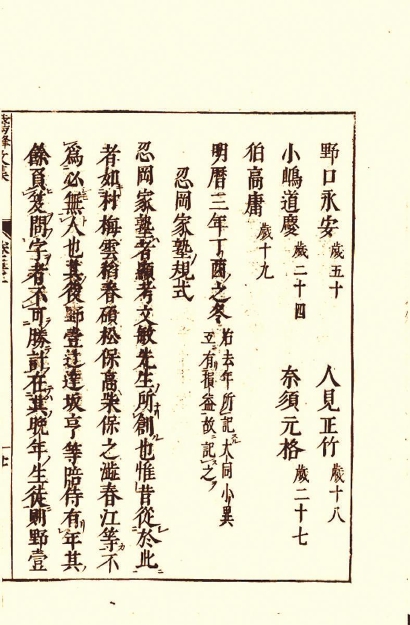 野口永安 歲五十 人見正竹 歲十八
小嶋道慶 歲二十四 奈須元格 歲二十七
伯高庸 歲十九
明曆三年丁酉之冬 右去年所記大同小異
立有損益故記之
忍岡家塾規式
忍岡家塾者顯考文敏先生所創也惟昔從於此
者如村梅雲稻春碩松保高柴保之澁春江等不
爲必無人也其後野壹辻達坂亨等陪侍有年其
餘負笈問字者不可勝計在其晩年生徒則野壹